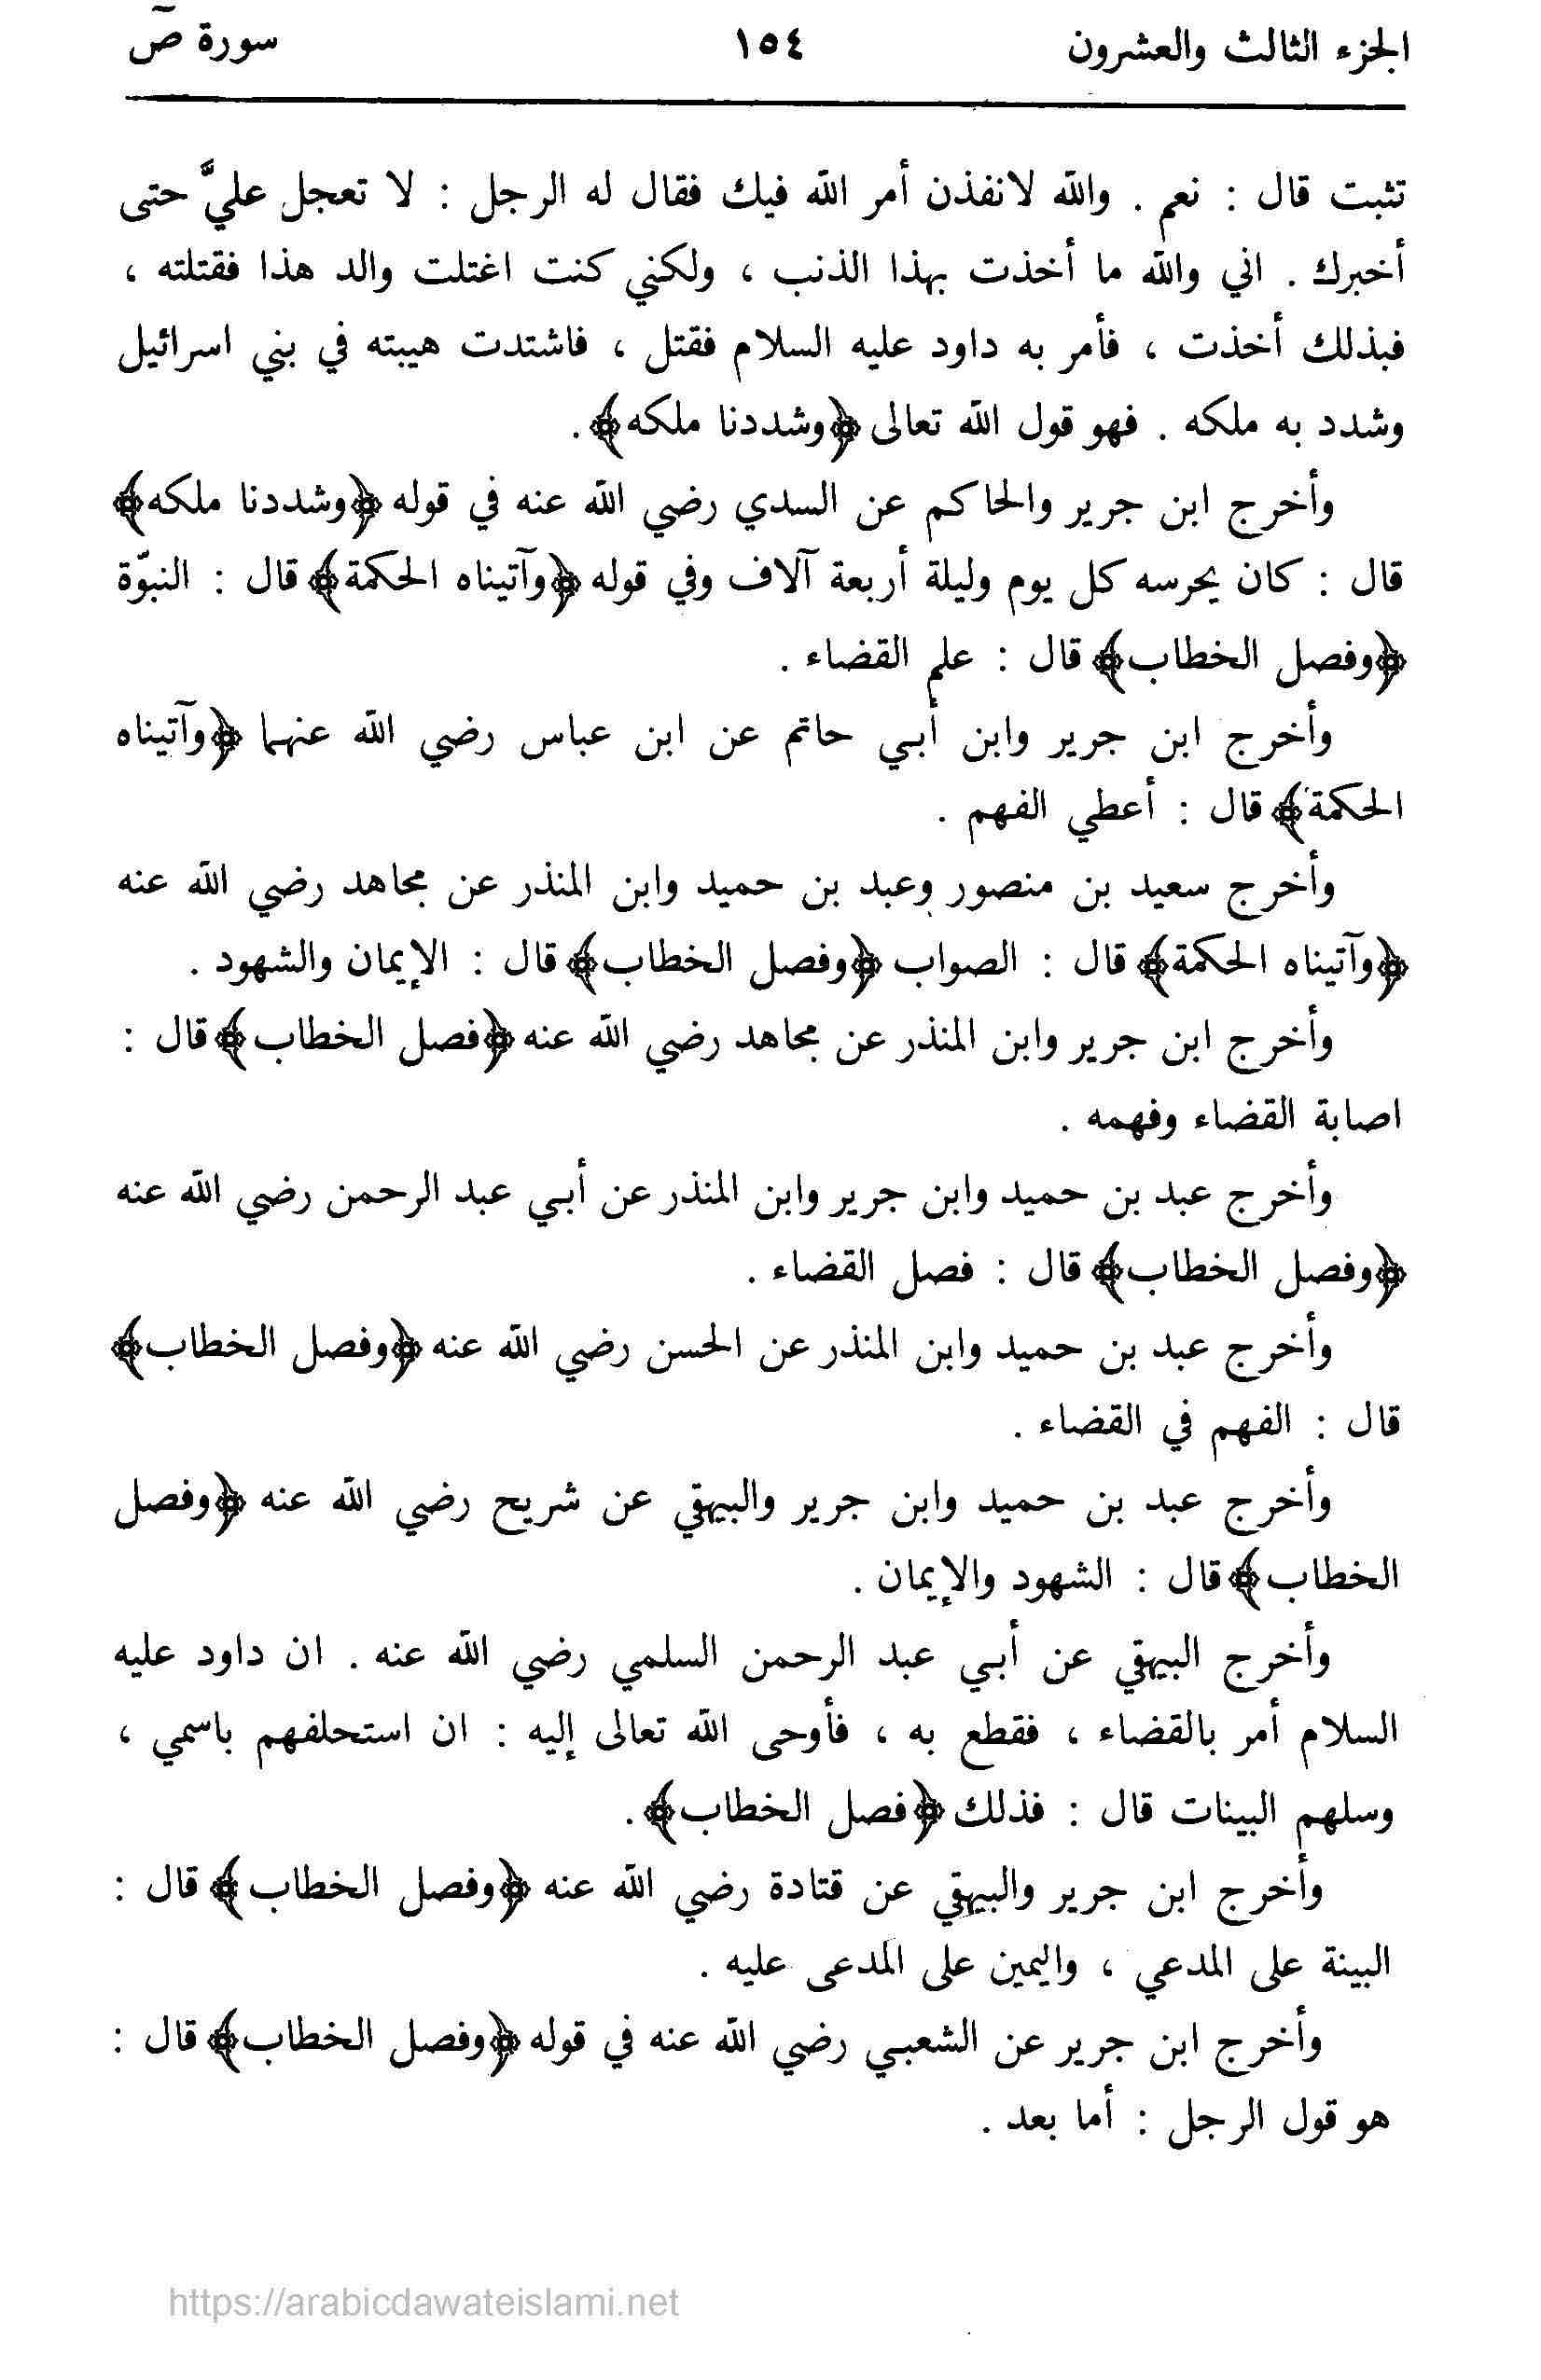 الجزء الثالث والعشرون ١٥٤ سورة صۤ
تثبت قال : نعم . والله لانفذن أمر الله فيك فقال له الرجل : لا تعجل عليَّ حتى
أخبرك . اني والله ما أخذت بهذا الذنب ، ولكني كنت اغتلت والد هذا فقتلته ،
فبذلك أخذت ، فأمر به داود عليه السلام فقتل ، فاشتدت هيبته في بني اسرائيل
وشدد به ملكه . فهو قول الله تعالى ﴿وشددنا ملكه﴾.
وأخرج ابن جرير والحاكم عن السدي رضي الله عنه في قوله ﴿وشددنا ملكه﴾
قال : كان يحرسه كل يوم وليلة أربعة آلاف وفي قوله ﴿وآتيناه الحكمة﴾ قال : النبوّة
﴿وفصل الخطاب﴾ قال : علم القضاء .
وأخرج ابن جرير وابن أبي حاتم عن ابن عباس رضي الله عنهما ﴿وآتيناه
الحكمة﴾ قال : أعطي الفهم .
وأخرج سعيد بن منصور وعبد بن حميد وابن المنذر عن مجاهد رضي الله عنه
﴿وآتيناه الحكمة﴾ قال : الصواب ﴿وفصل الخطاب﴾ قال : الإيمان والشهود .
وأخرج ابن جرير وابن المنذر عن مجاهد رضي الله عنه ﴿فصل الخطاب﴾ قال :
اصابة القضاء وفهمه .
وأخرج عبد بن حميد وابن جرير وابن المنذر عن أبي عبد الرحمن رضي الله عنه
﴿وفصل الخطاب﴾ قال : فصل القضاء .
وأخرج عبد بن حميد وابن المنذر عن الحسن رضي الله عنه ﴿وفصل الخطاب﴾
قال : الفهم في القضاء .
وأخرج عبد بن حميد وابن جرير والبيهقي عن شريح رضي الله عنه ﴿وفصل
الخطاب﴾ قال : الشهود والإيمان .
وأخرج البيهقي عن أبي عبد الرحمن السلمي رضي الله عنه . ان داود عليه
السلام أمر بالقضاء ، فقطع به ، فأوحى الله تعالى إليه : ان استحلفهم باسمي ،
وسلهم البينات قال : فذلك ﴿فصل الخطاب﴾.
وأخرج ابن جرير والبيهقي عن قتادة رضي الله عنه ﴿وفصل الخطاب﴾ قال :
البينة على المدعي ، واليمين على المدعى عليه .
وأخرج ابن جرير عن الشعبي رضي الله عنه في قوله ﴿وفصل الخطاب﴾ قال :
هو قول الرجل : أما بعد .
https://arabicdawateislami.net